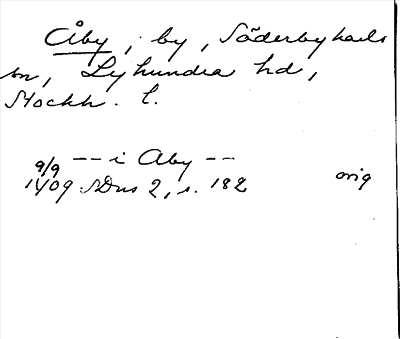 Åby, by, Söderbykarls
sn, Lyhundra hd,
Stockh. l.
9/9 -- i Aby --
1409 SDns 2, s. 182 orig